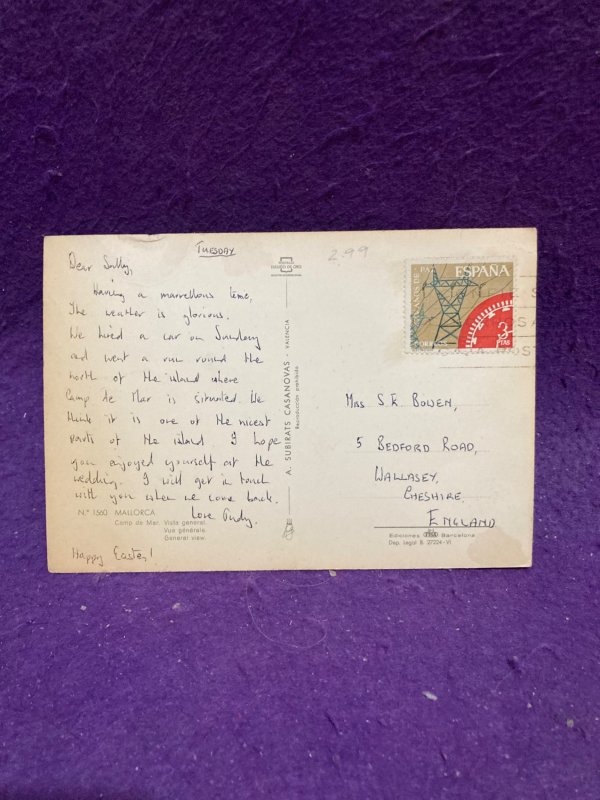 TUESDAY
Dear Sally,
Having a marvellous time,
The weather is glorious.
We hired a car on Sunday
and went a run round the
north of the island where
Camp de Mar is situated. We
think it is one of the nicest
parts of the island. I hope
you enjoyed yourself at the
wedding. I will get in touch
with you when we come back.
Love Judy.
Happy Easter!
N.º 1560 MALLORCA
Camp de Mar. Vista general.
Vue générale.
General view.
A. SUBIRATS CASANOVAS - VALENCIA
Reproducción prohibida
2.99
AÑOS DE PAZ
ESPAÑA
CORREOS
3
PTAS
Mrs S.E. BOWEN,
5 BEDFORD ROAD,
WALLASEY,
CHESHIRE,
ENGLAND
Ediciones Barcelona
Dep. Legal B. 27224-VI